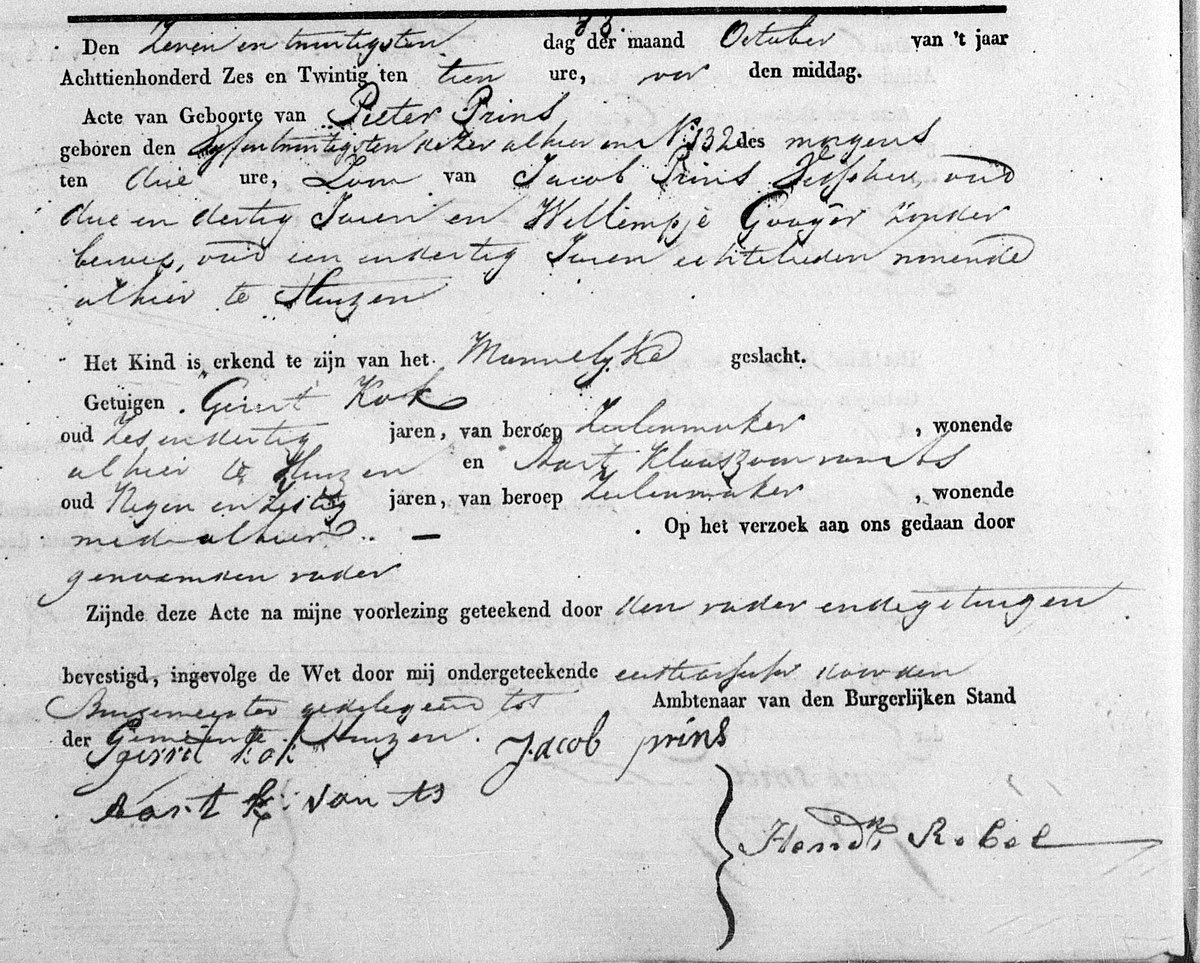 Den Zeven en twintigsten dag der maand October van 't jaar
Achttienhonderd Zes en Twintig ten tien ure, voor den middag.
Acte van Geboorte van Pieter Prins
geboren den Vyfentwintigsten dezer alhier in No. 132 des morgens
ten drie ure, Zoon van Jacob Prins Visscher, oud
drie en dertig Jaren en Willempje Gooijer zonder
beroep, oud een en dertig Jaren echtelieden wonende
alhier te Huizen
Het Kind is erkend te zijn van het Mannelyke geslacht.
Getuigen Gerrit Kok
oud Zes en dertig jaren, van beroep Zeilenmaker, wonende
alhier te Huizen en Aart Klaaszoon van As
oud Negen en Zestig jaren, van beroep Zeilenmaker, wonende
mede alhier. — Op het verzoek aan ons gedaan door
genoemden vader
Zijnde deze Acte na mijne voorlezing geteekend door den vader en de getuigen
bevestigd, ingevolge de Wet door mij ondergeteekende door den
Burgemeester gedelegeerd tot Ambtenaar van den Burgerlijken Stand
der Gemeente Huizen.
Gerrit Kok Jacob prins
Aart K: van As
Hendk Rebel